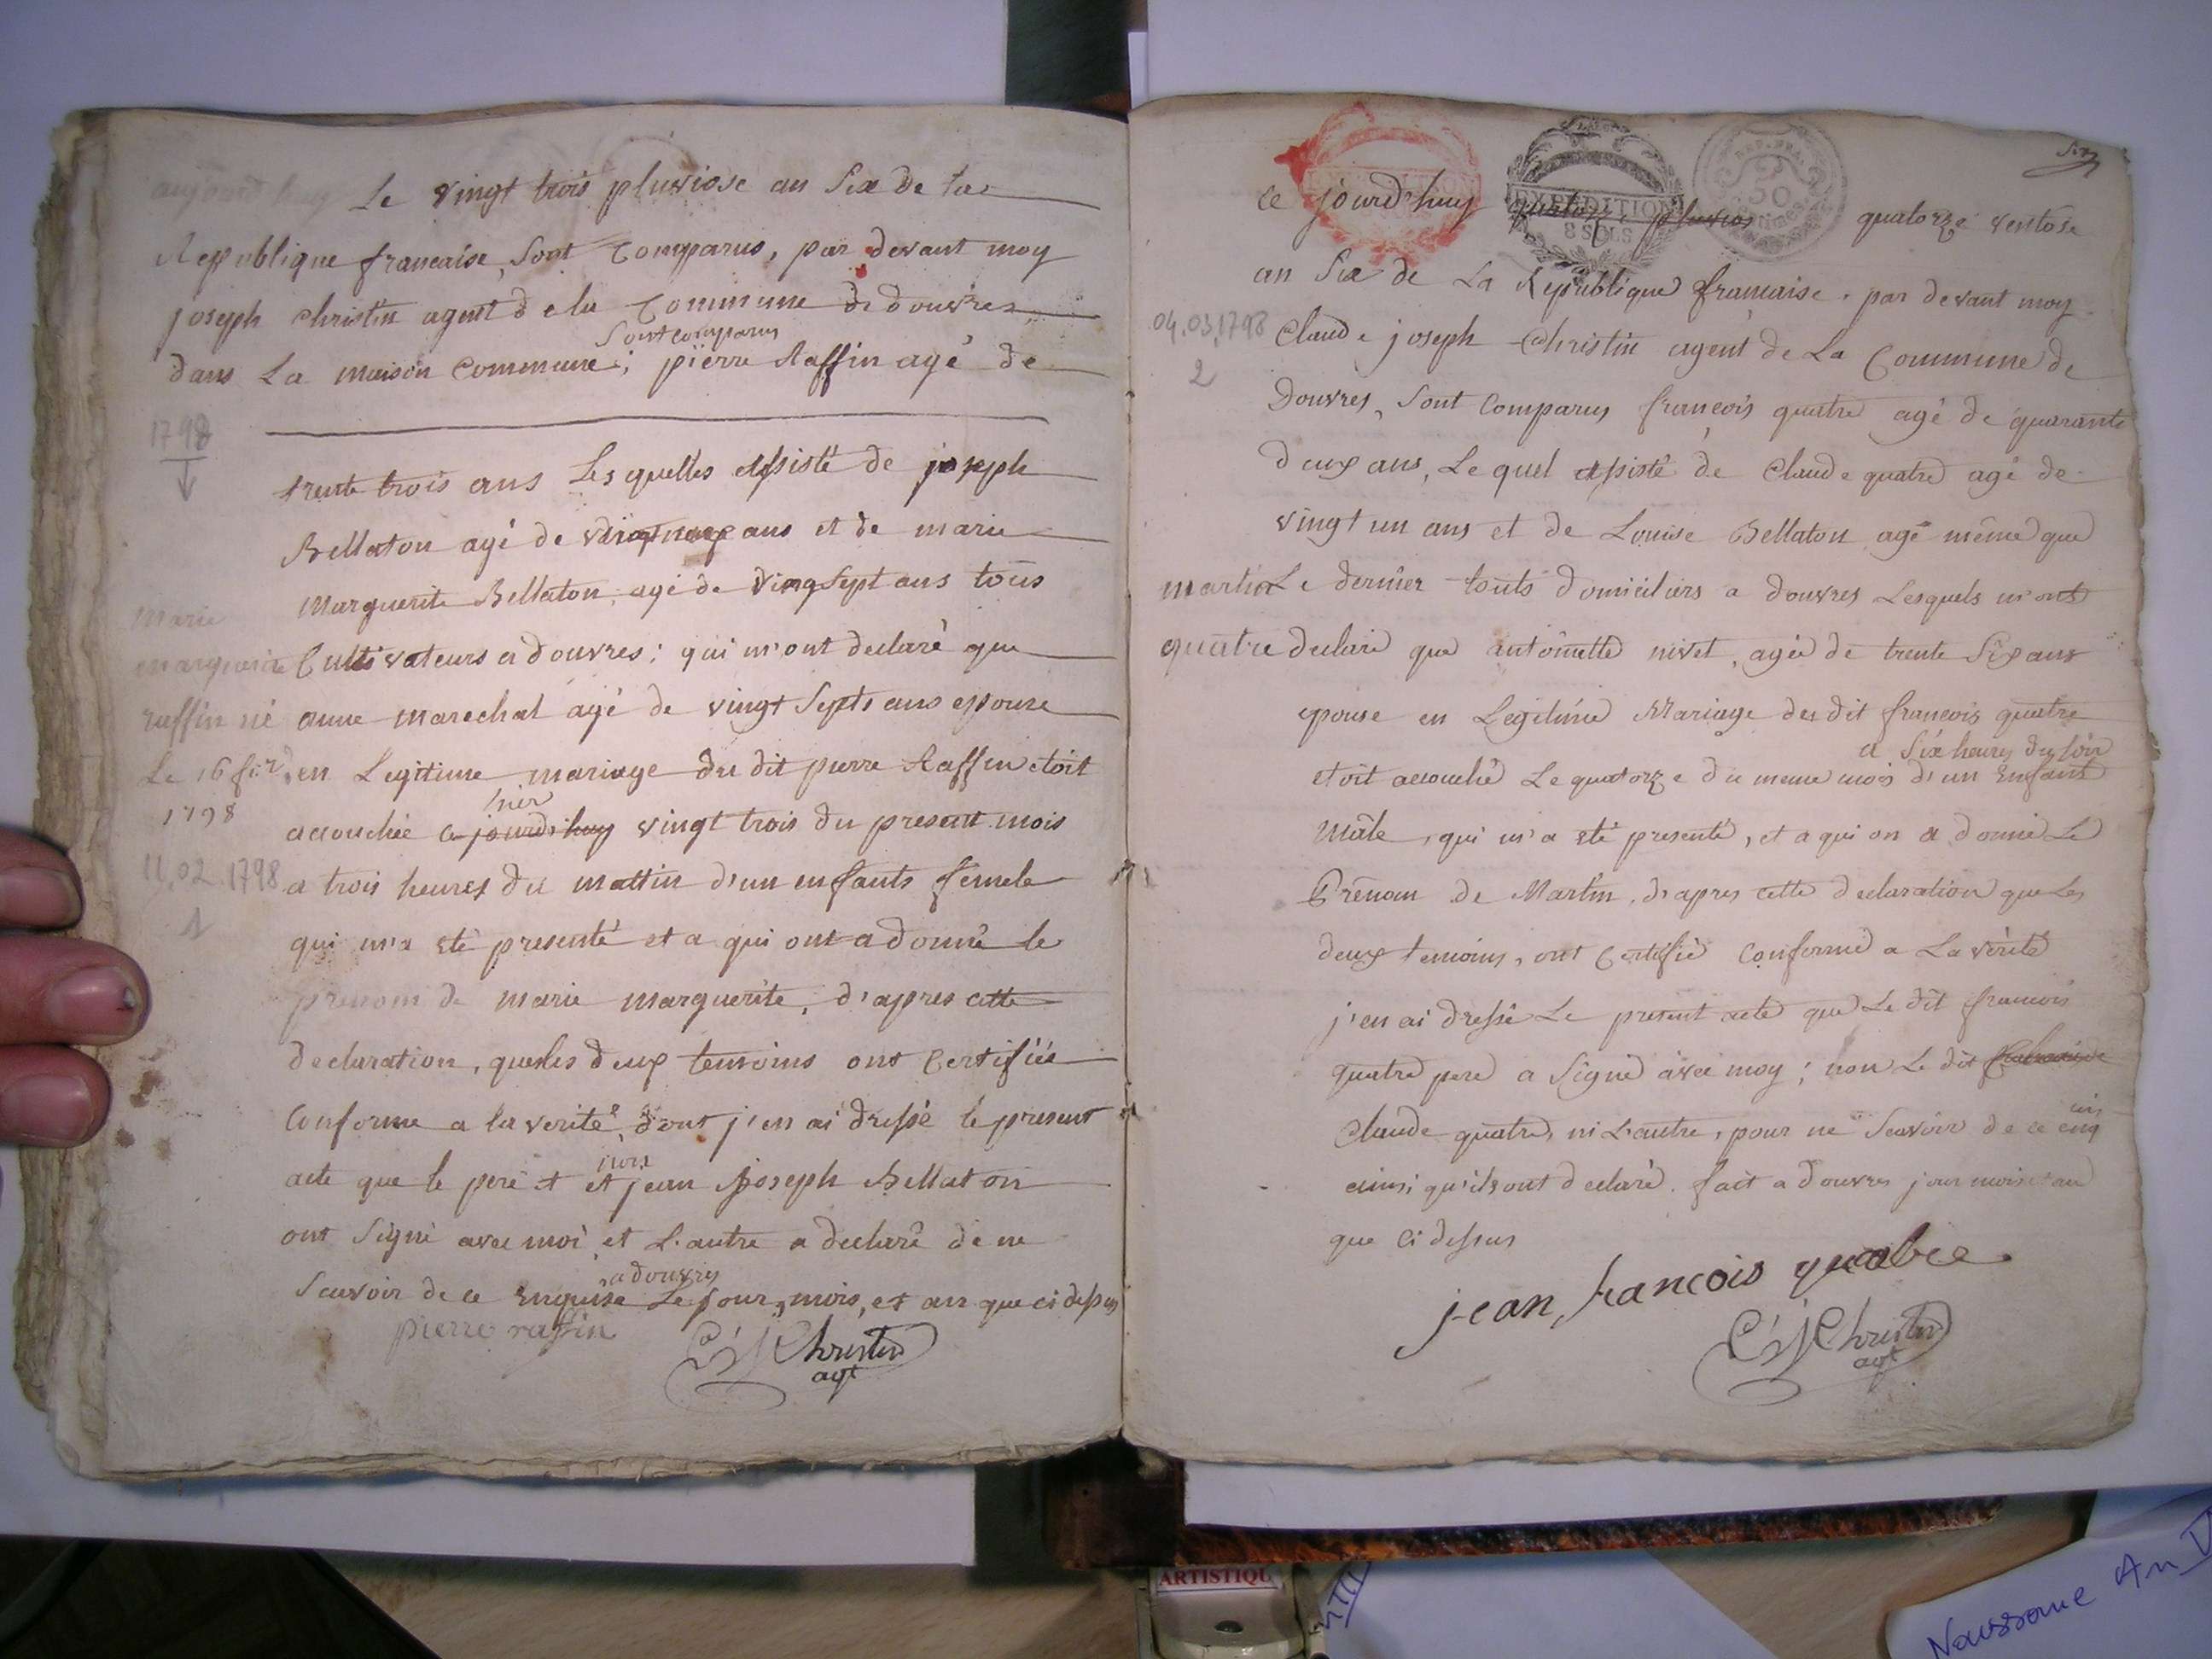 aujourd'huy Le vingt trois pluviose an Six De la
Republique francaise, Sont Comparus, par devant moy
joseph christin agent de la Commune de douvres
Sont comparus
dans La maison Commune; pierre Raffin agé de
1798
trente trois ans Lesquelles assisté de joseph
Bellaton agé de ans et de marie
Marguerite Bellaton, agé de vingsept ans tous
Cultivateurs a douvres; qui m'ont declaré que
anne marechal agé de vingt Septs ans epouse
en Legitime mariage du dit pierre Raffin etoit
hier
accouchée ce jourd'huy vingt trois du present mois
a trois heures du mattin d'un enfants femele
qui m'a eté presenté et a qui ont a donné le
prenom de marie marguerite, d'apres cette
declaration, que les deux temoins ont Certifiée
Conforme a la verité, dont j'en ai dressé le present
non
acte que le pere et et jean joseph Bellaton
ont Signé avec moi et L'autre a declaré de ne
a douvres
Scavoir de ce enquise Le jour, mois, et an que ci dessus
pierre raffin
C J Christin
agt
Marie
marguerite
raffin né
Le 16 fév
1798
11.02.1798
1
Six
EXPEDITION
EXPEDITION
8 SOLS
REP. FRA.
50
ce jourd'huy quatorze pluvios quatorze ventose
an Six de La Republique francaise, par devant moy
Claude joseph Christin agent de La Commune de
Douvres, Sont Comparus francois quatre agé de quarante
deux ans, Le quel assisté de Claude quatre agé de
vingt un ans et de Louise Bellaton agé même que
Le dernier touts domiciliers a douvres Lesquels m'ont
declaré que antoinette nivet, agée de trente Six ans
epouse en Legitime Mariage du dit francois quatre
a Six heures du soir
etoit accouché Le quatorze du meme mois d'un Enfant
Mâle, qui m'a eté presenté, et a qui on a donné Le
Prénom de Martin, d'apres cette declaration que Les
deux temoins, ont Certifié Conforme a La verité
j'en ai dressé Le present acte que Le dit francois
quatre pere a Signé avec moy; non Le dit
Claude quatre, ni L'autre, pour ne Scavoir de ce enq
ainsi qu'ils ont declaré. fait a douvres jour mois et an
que ci dessus
jean, francois quatre
C J Christin
agt
04.03.1798
2
martin
quatre
ARTISTIQU
Naissance An V